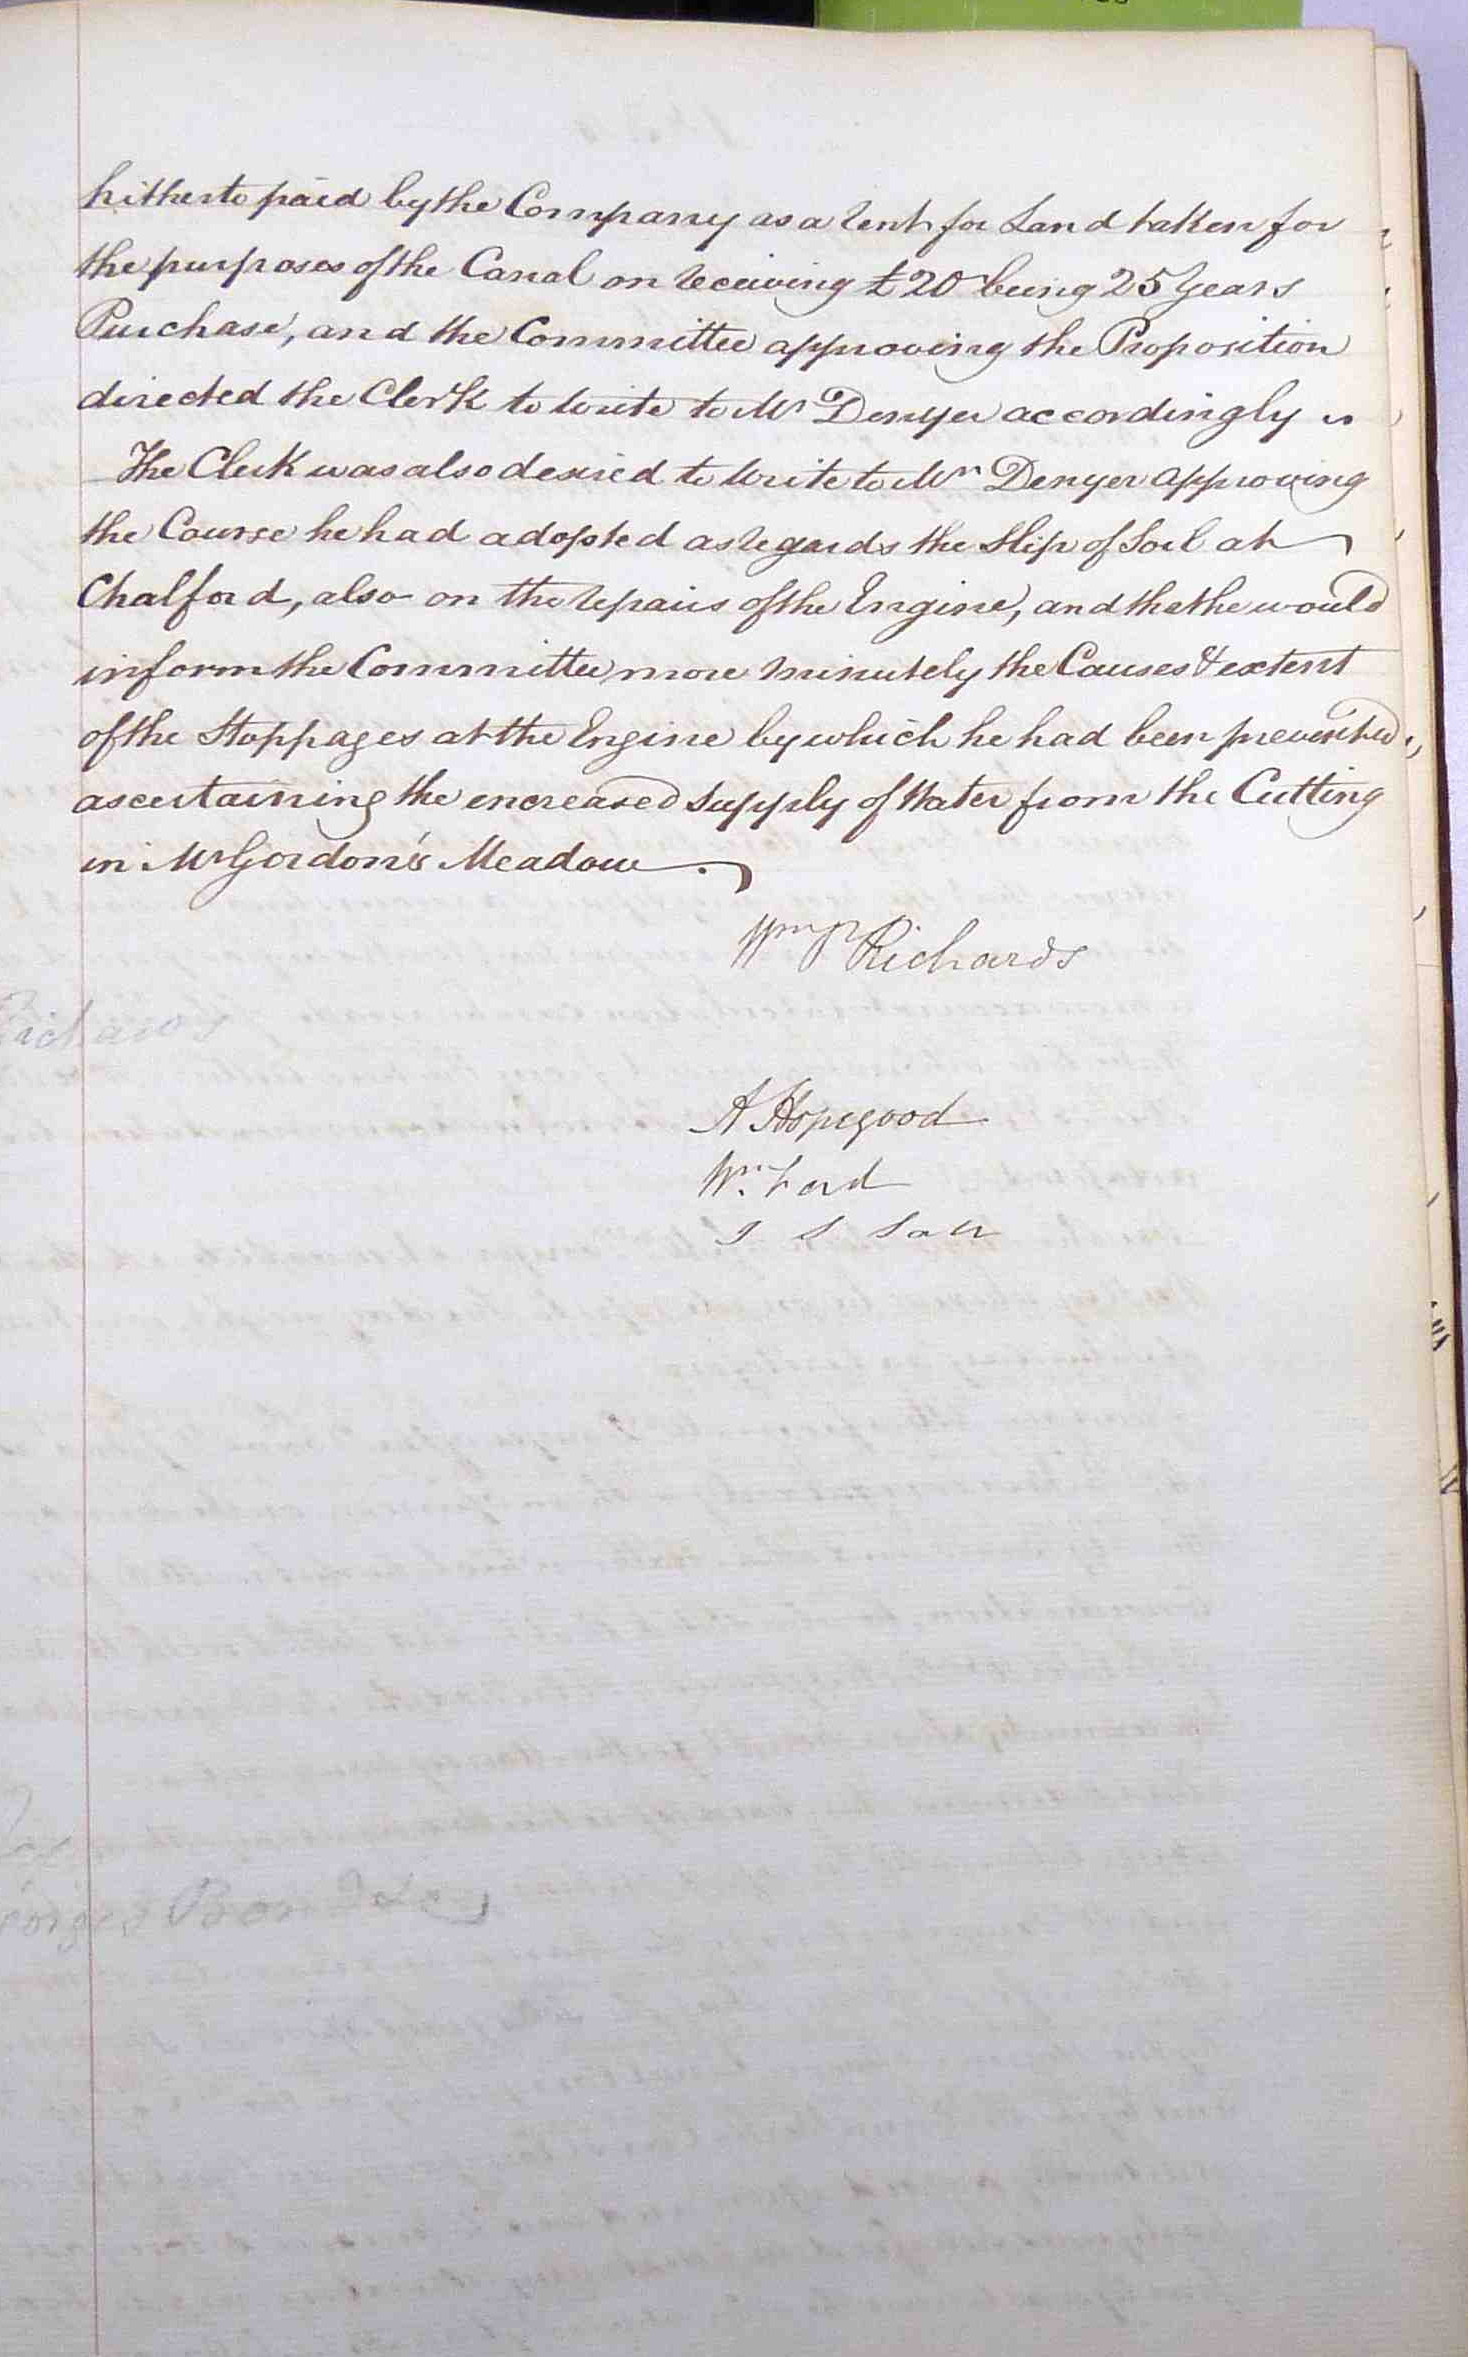 hitherto paid by the Company as a rent for Land taken for
the purposes of the Canal on receiving £20 being 25 Years
Purchase, and the Committee approving the Proposition
directed the Clerk to write to Mr Denyer accordingly
The Clerk was also desired to write to Mr Denyer approving
the Course he had adopted as regards the Slip of Soil at
Chalford, also on the repairs of the Engine, and that he would
inform the Committee more minutely the Causes & extent
of the Stoppages at the Engine by which he had been prevented
ascertaining the encreased supply of Water from the Cutting
in Mr Gordon's Meadow.
Wm P Richards
A Hopegood
Wm. Ford